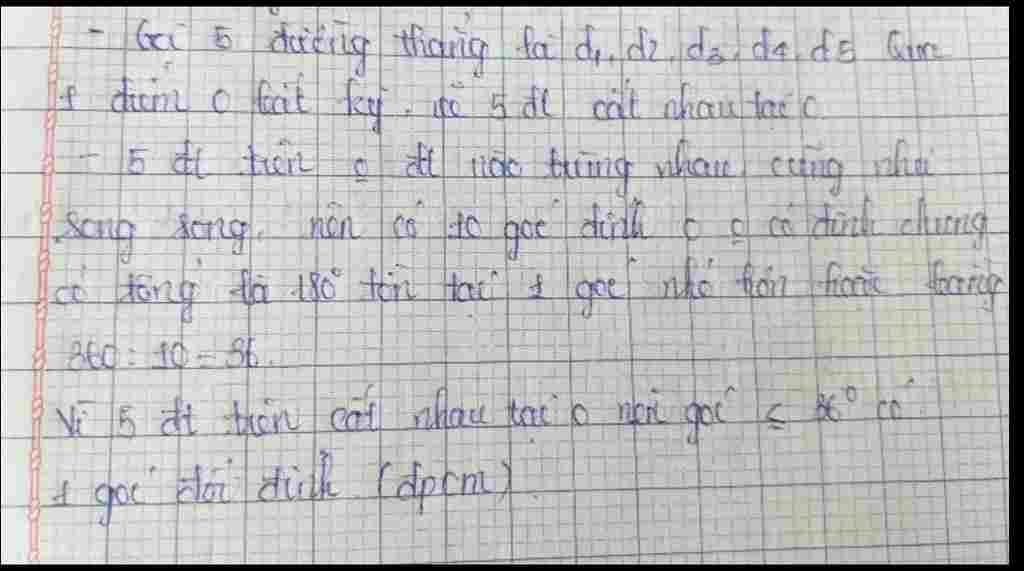 - Gọi 5 đường thẳng là d1, d2, d3, d4, d5
1 điểm O bất kỳ. 5 đt cắt nhau tại O
- 5 đt trên đt nào trùng nhau, cũng như
song song. nên có 10 góc đỉnh O có đỉnh chung
có tổng là 180° tồn tại 1 góc nhỏ hơn hoặc bằng
360 : 10 = 36.
Vì 5 đt trên cắt nhau tại O nên góc ≤ 36° có
1 góc đối đỉnh (đpcm)